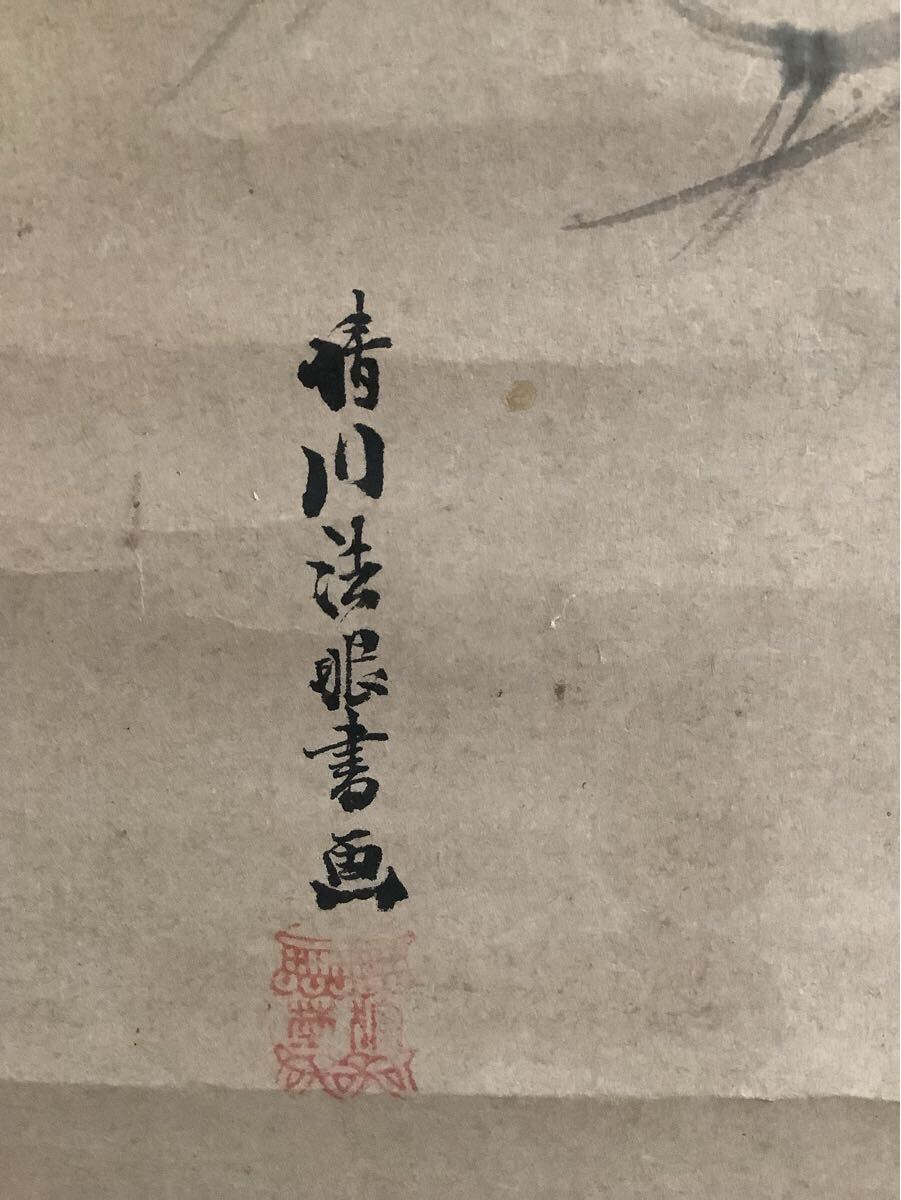 晴川法眼書画